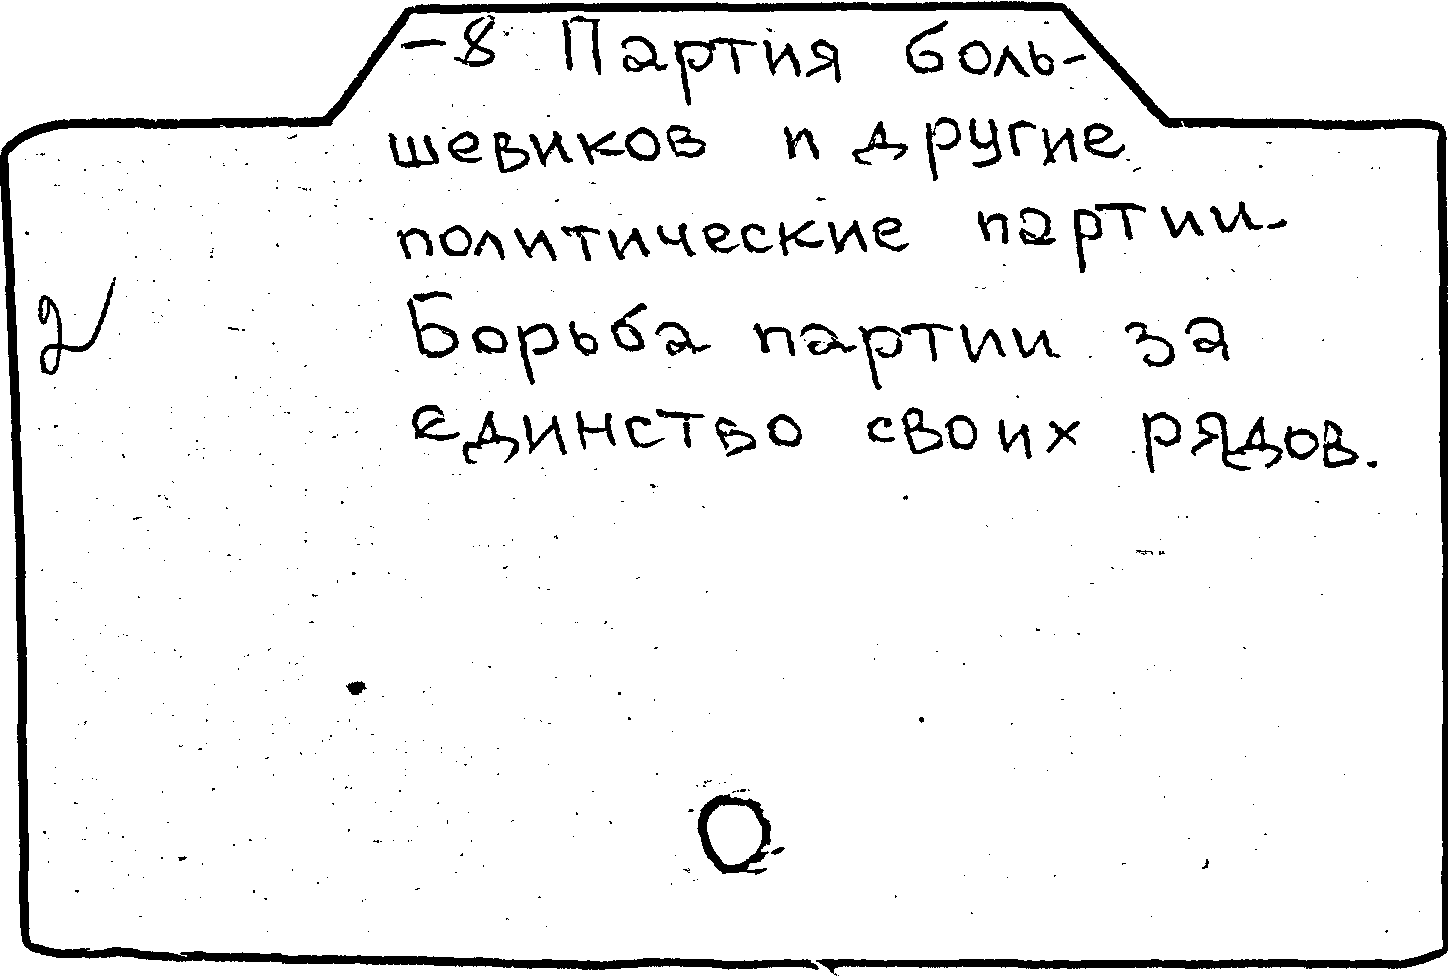 -8 Партия боль-
шевиков и другие
политические партии.
Борьба партии за
единство своих рядов.